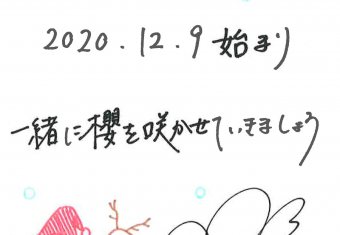 2020.12.9 始まり
一緒に櫻を咲かせていきましょう